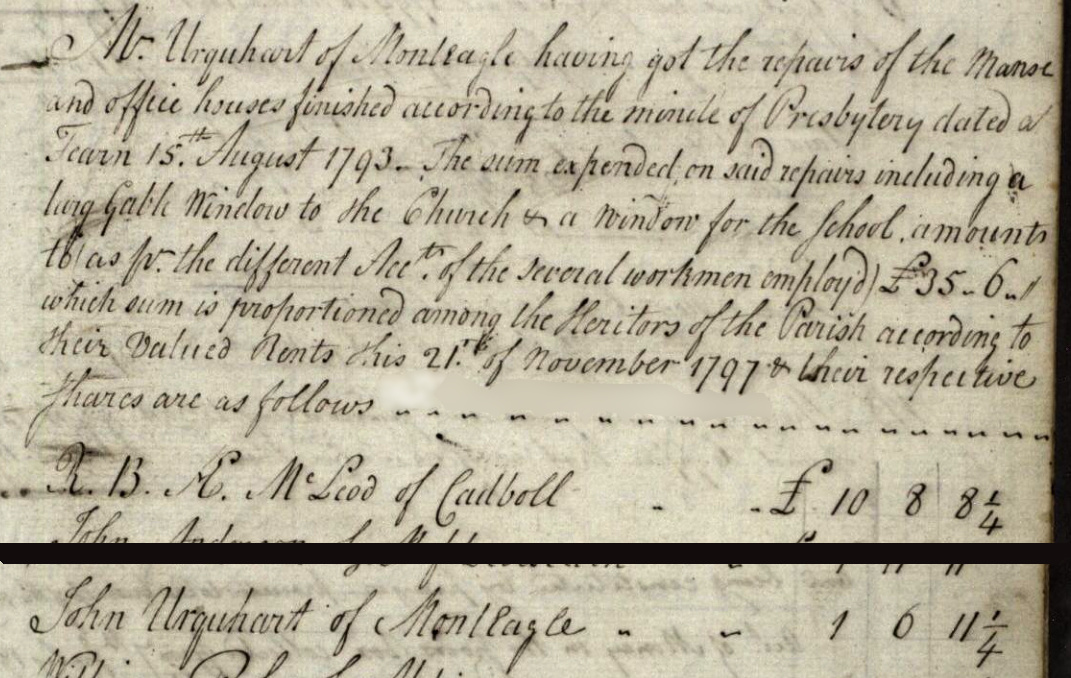 Mr. Urquhart of Monteagle having got the repairs of the Manse
and office houses finished according to the minute of Presbytery dated at
Tearn 15.th August 1793. The sum expended on said repairs including a
larg Gable Window to the Church & a window for the School, amounts
to (as pr. the different Acctts. of the several workmen employd) £35 - 6 - 1
which sum is proportioned among the Heritors of the Parish according to
their Valued Rents this 21.st of November 1797 & their respective
shares are as follows
R. B. Æ. McLeod of Cadboll - - £ 10 8 8 1/4
John Anderson of
John Urquhart of Monteagle " " 1 6 11 1/4